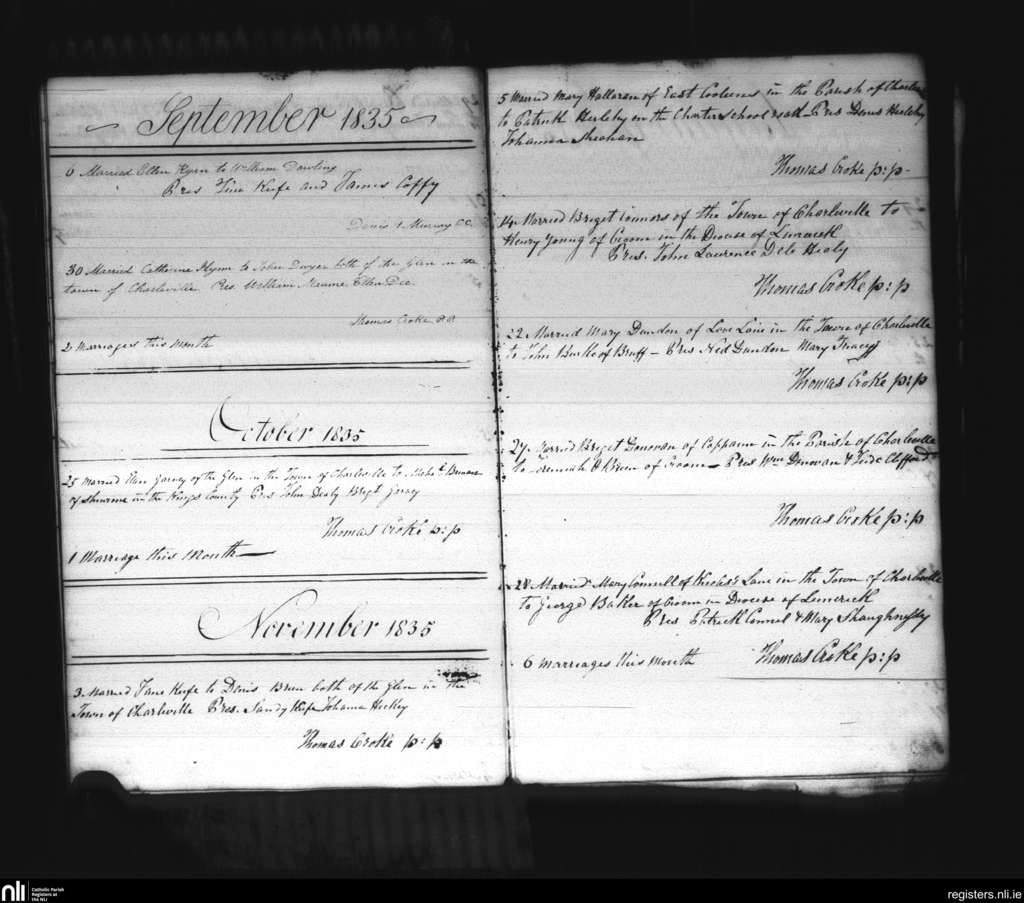 September 1835
6 Married Ellen Flynn to William Dowling
Pres Tim Kiefe and James Coffy
Denis Murray CC
30 Married Catherine Flynn to John Dwyer both of the Glen in the
town of Charleville Pres William Ellen Dee
Thomas Croke P.P.
2 Marriages this Month
October 1835
25 Married Ellen Garvey of the Glen in the Town of Charleville to
of in the Kings County Pres John Daly Brigt Garvy
Thomas Croke p:p
1 Marriage this Month
November 1835
3 Married Jane Kiefe to Denis Brien both of the Glen in the
Town of Charleville Pres. Sandy Kiefe Johanna Hickey
Thomas Croke p:p
5 Married Mary Halloran of East Coolenes in the Parish of Charleville
to Patrick Herlehy on the Charter School road Pres Denis Herlehy
Johanna Sheahan
Thomas Croke p:p
14 Married Briget Connors of the Town of Charleville to
Henry Young of Croom in the Diocese of Limerick
Pres. John Laurence Healy
Thomas Croke p:p
22 Married Mary Dundon of Love Lane in the Town of Charleville
to John Burke of Bruff - Pres Ned Dundon Mary Tracey
Thomas Croke p:p
27 Married Briget Donovan of in the Parish of Charleville
to Jeremiah of Croom - Pres Wm Donovan & Clifford
Thomas Croke p:p
28 Married Mary Connell of Lane in the Town of Charleville
to George Baker of Croom in Diocese of Limerick
Pres Patrick Connel & Mary Shaughnessy
6 marriages this month Thomas Croke p:p
nli Catholic Parish
Registers at
the NLI
registers.nli.ie